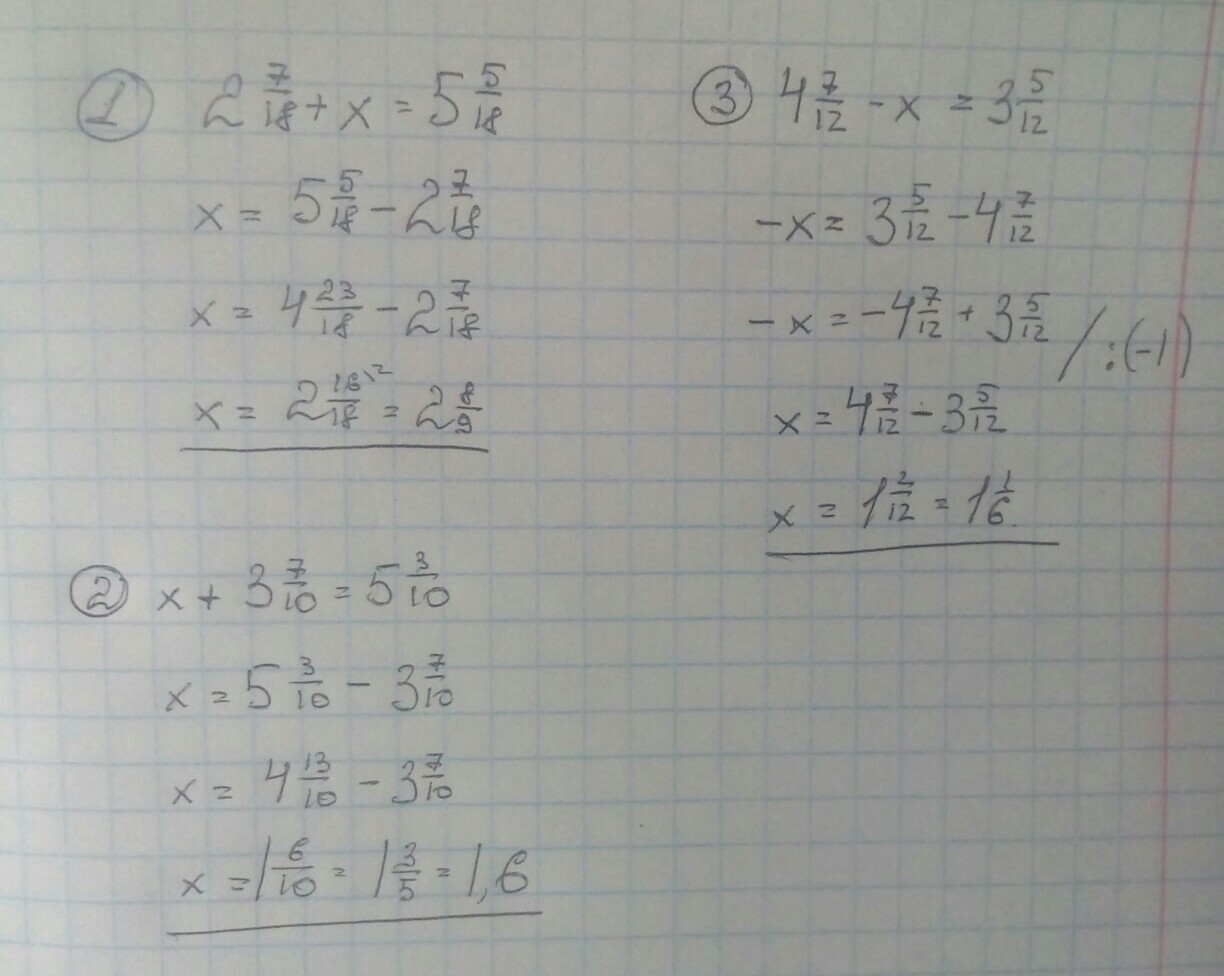 ① 2 7/18 + x = 5 5/18
x = 5 5/18 - 2 7/18
x = 4 23/18 - 2 7/18
x = 2 16\2/18 = 2 8/9
② x + 3 7/10 = 5 3/10
x = 5 3/10 - 3 7/10
x = 4 13/10 - 3 7/10
x = 1 6/10 = 1 3/5 = 1,6
③ 4 7/12 - x = 3 5/12
-x = 3 5/12 - 4 7/12
-x = -4 7/12 + 3 5/12 / :(-1)
x = 4 7/12 - 3 5/12
x = 1 2/12 = 1 1/6.